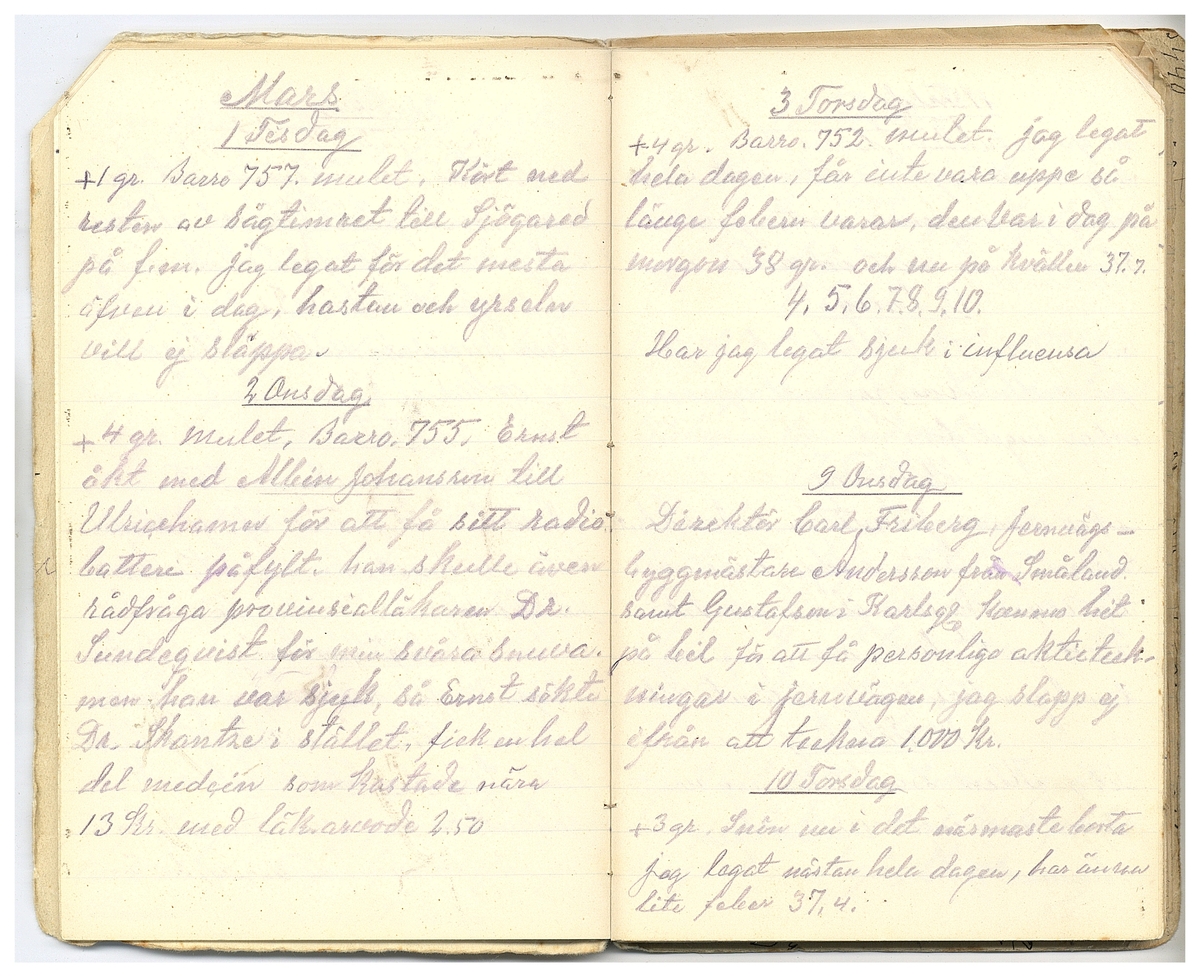 Mars
1 Tisdag
+1 gr. Barro 757. mulet. Kört ned
resten av sågtimret till Sjögared
på f.m. jag legat för det mesta
äfven i dag, hostan och yrseln
vill ej släppa.
2 Onsdag
+4 gr. mulet, Barro. 755. Ernst
åkt med Albin Johansson till
Ulricehamn för att få sitt radio
batteri påfylt. han skulle även
rådfråga provinsialläkaren Dr.
Sundeqvist för min svåra snuva.
men han var sjuk, så Ernst sökte
Dr. Skantze i stället, fick en hel
del medecin som kostade nära
13 Kr. med läk.arvode 2.50
3 Torsdag
+4 gr. Barro. 752. mulet. jag legat
hela dagen, får inte vara uppe så
länge febern varar, den var i dag på
morgon 38 gr. och nu på kvällen 37.7.
4. 5. 6. 7. 8. 9. 10.
Har jag legat sjuk i influensa
9 Onsdag
Direktör Carl Friberg, jernvägs-
byggmästare Andersson från Småland.
samt Gustafson i Karlsgb kommo hit
på bil för att få personliga aktieteck-
ningar i jernvägen, jag slapp ej
ifrån att teckna 1.000 Kr.
10 Torsdag
+3 gr. Snön nu i det närmaste borta
jag legat nästan hela dagen, har ännu
lite feber 37,4.